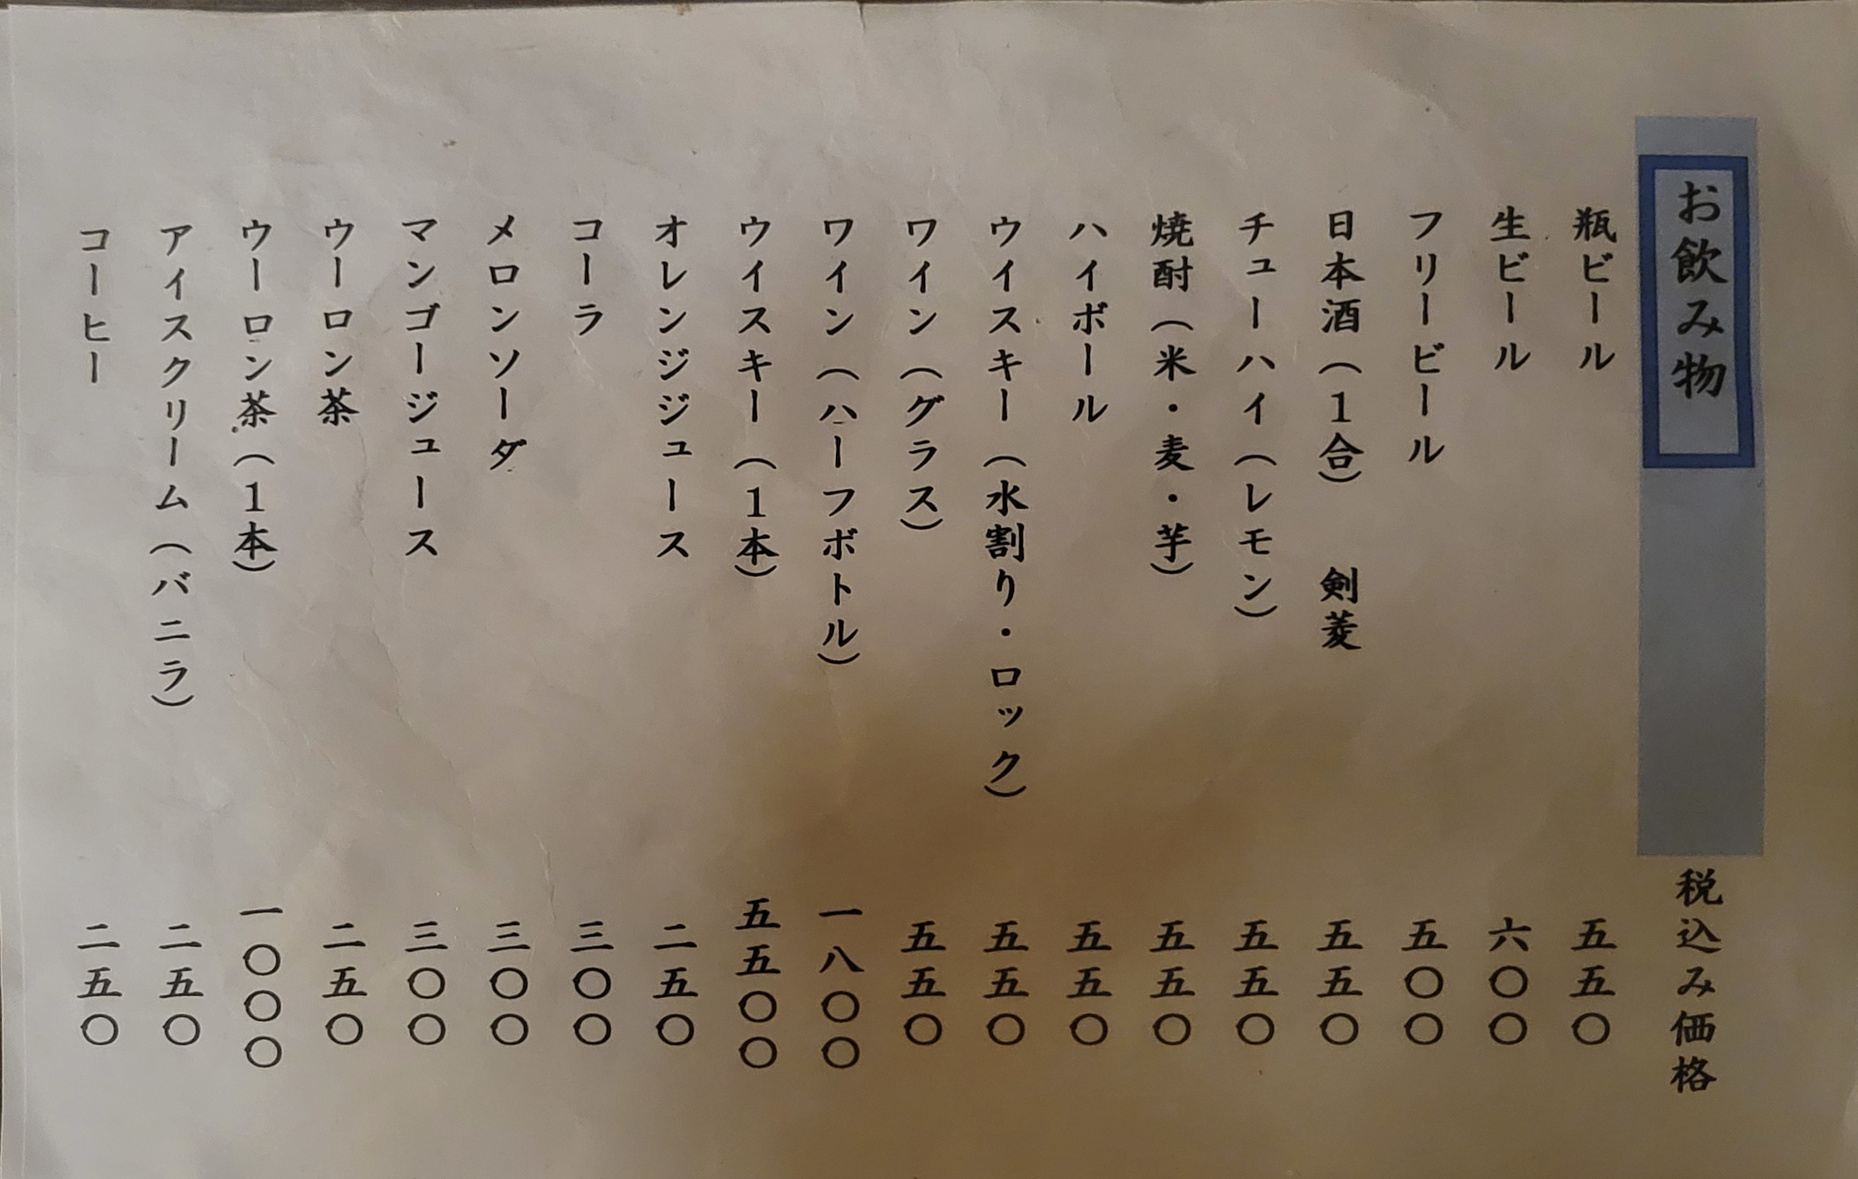 お飲み物　税込み価格
瓶ビール　五五〇
生ビール　六〇〇
フリービール　五〇〇
日本酒（１合）　剣菱　五五〇
チューハイ（レモン）　五五〇
焼酎（米・麦・芋）　五五〇
ハイボール　五五〇
ウイスキー（水割り・ロック）　五五〇
ワイン（グラス）　五五〇
ワイン（ハーフボトル）　一八〇〇
ウイスキー（１本）　五五〇〇
オレンジジュース　二五〇
コーラ　三〇〇
メロンソーダ　三〇〇
マンゴージュース　三〇〇
ウーロン茶　二五〇
ウーロン茶（１本）　一〇〇〇
アイスクリーム（バニラ）　二五〇
コーヒー　二五〇